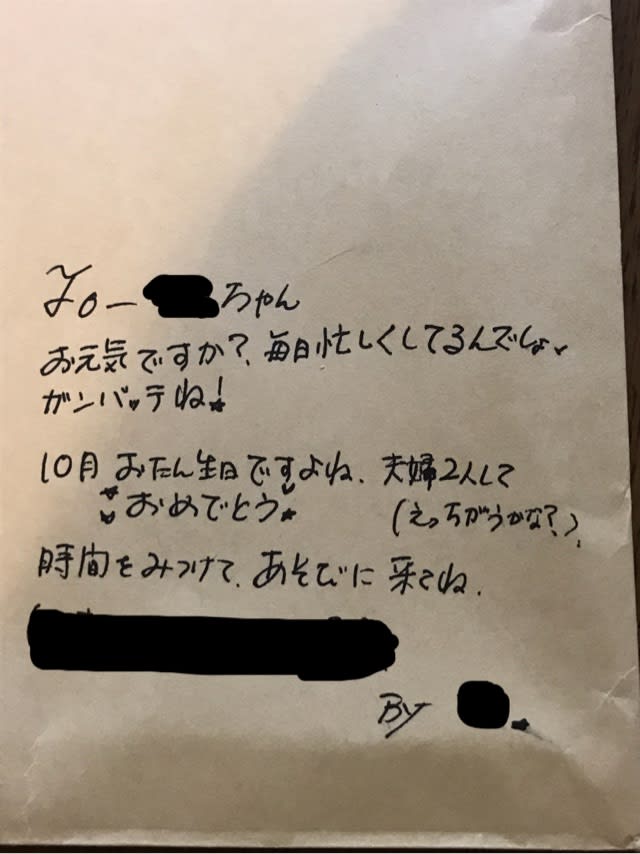 To― ちゃん
お元気ですか?、毎日忙しくしてるんでしょ
ガンバッテね!
10月 おたん生日ですよね、夫婦2人して
おめでとう
(えっちがうかな?)
時間をみつけて、あそびに来てね、
By